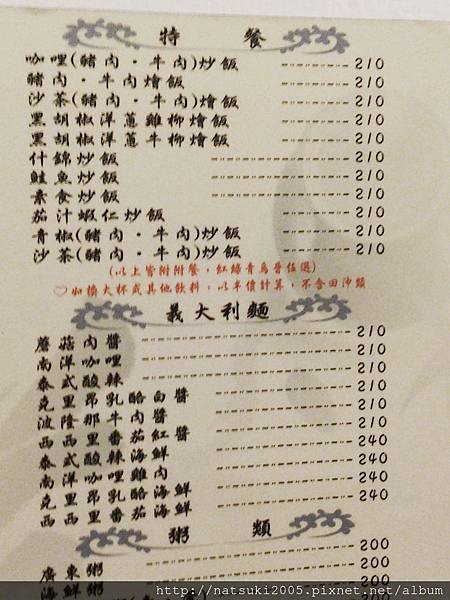 特 餐
咖哩(豬肉·牛肉)炒飯 210
豬肉·牛肉燴飯 210
沙茶(豬肉·牛肉)燴飯 210
黑胡椒洋蔥雞柳燴飯 210
黑胡椒洋蔥牛柳燴飯 210
什錦炒飯 210
鮭魚炒飯 210
素食炒飯 210
茄汁蝦仁炒飯 210
青椒(豬肉·牛肉)炒飯 210
沙茶(豬肉·牛肉)炒飯 210
(以上皆附附餐，紅綠青烏晉任選)
♡如換大杯或其他飲料，以半價計算，不含田沖類
義大利麵
蘑菇肉醬 210
南洋咖哩 210
泰式酸辣 210
克里昂乳酪白醬 210
波隆那牛肉醬 210
西西里番茄紅醬 210
泰式酸辣海鮮 240
南洋咖哩雞肉 240
克里昂乳酪海鮮 240
西西里番茄海鮮 240
粥 類
廣東粥 200
海鮮粥 200
200
http://natsuki2005.pixnet.net/album